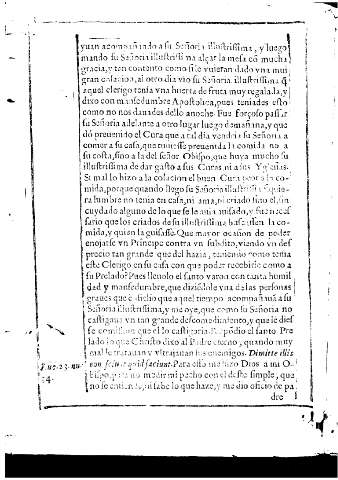 yuan acompañando a su Señoria illustrissima, y luego
mando su Señoria illustrissima alçar la mesa cõ mucha
gracia, y tan contento como si le vuieran dado vna muy
gran colacion, al otro dia vio su Señoria illustrissima q̃
aquel clerigo tenia vna huerta de fruta muy regalada, y
dixo con mansedumbre Apostolica, pues teniades esto
como no nos dauades dello anoche. Fue forçoso passar
su Señoria adelante a otro lugar luego de mañana, y que
dó preuenido el Cura que a tal dia vendria su Señoria a
comer a su casa, que tuuiesse preuenida la comida no a
su costa, sino a la del señor Obispo, que huya mucho su
illustrissima de dar gasto a sus Curas, ni a sus Yglesias.
Si mal lo hizo a la colacion el buen Cura peor a la co-
mida, porque quando llego su Señoria illustrissima
lumbre no tenia en casa, ni ama, ni criado sino el, sin
cuydado alguno de lo que se le auia auisado, y fue neces
sario que los criados de su illustrissima buscassen la co-
mida, y quien la guisasse. Que mayor ocasion de poder
enojarse vn Principe contra vn subdito, viendo vn des
precio tan grande que del hazia, teniendo como tenia
este Clerigo en su casa con que poder recebirle como a
su Prelado? Pues lleuolo el santo varon con tanta humil
dad y mansedumbre, que diziẽdole vna de las personas
graues que è dicho que a quel tiempo acompañaua a su
Señoria illustrissima, y me oye, que como su Señoria no
castigaua vn tan grande descomedimiento, y que le dies
se comission que el lo castigaria. Respõdio el santo Pre
lado lo que Christo dixo al Padre eterno, quando muy
mal le tratauan y vltrajauan sus enemigos. Dimitte illis
non sciunt quid faciunt. Para esto me hizo Dios a mi O-
bispo, para no medir mi pecho con el deste simple, que
no se entiende, ni sabe lo que haze, y me dio oficio de pa
dre
Luc. 23. nu.
34.